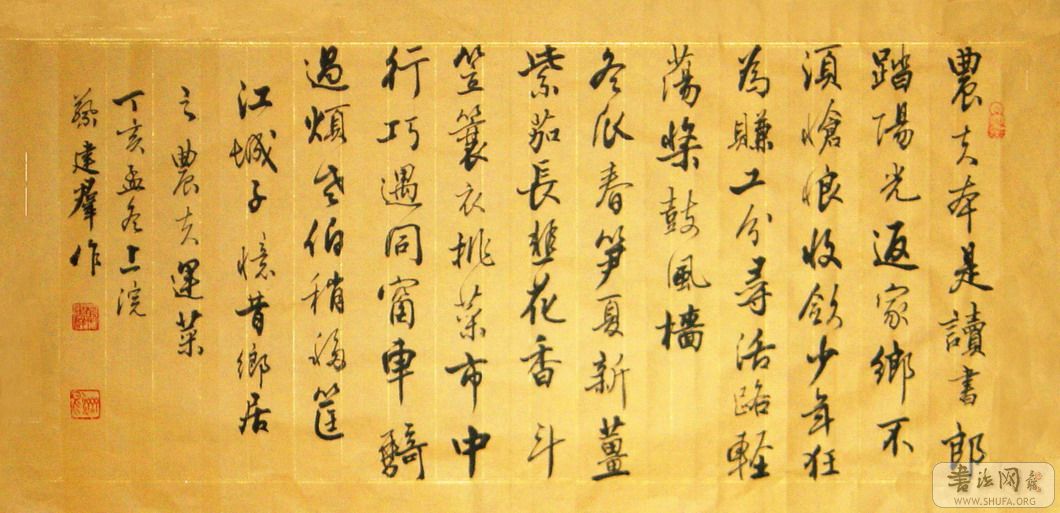 農夫本是讀書郎
踏陽光返家鄉不
須愴悢收斂少年狂
為賺工分尋活路輕
蕩槳鼓風檣
冬瓜春笋夏新薑
紫茄長韮花香斗
笠蓑衣挑菜市中
行巧遇同窗車騎
過煩老伯稍移筐
江城子憶昔鄉居
之農夫運菜
丁亥孟冬上浣
蔡建羣作
書法网
WWW.SHUFA.ORG